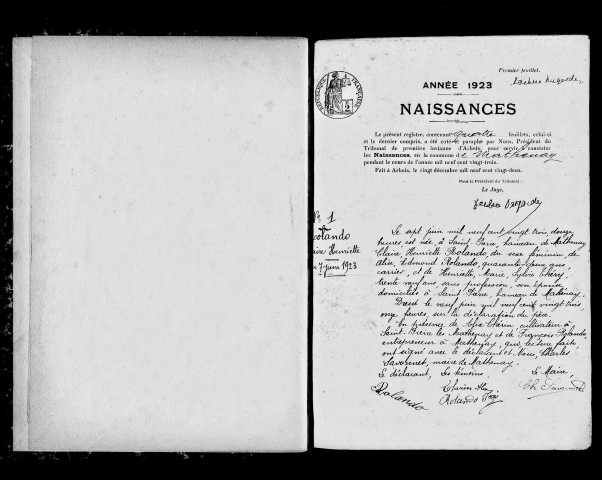 Premier feuillet.
ANNÉE 1923
NAISSANCES
Le présent registre, contenant quatre feuillets, celui-ci
et le dernier compris, a été coté et paraphé par Nous, Président du
Tribunal de première instance d'Arbois, pour servir à constater
les Naissances, en la commune de Mathenay
pendant le cours de l'année mil neuf cent vingt-trois.
Fait à Arbois, le vingt décembre mil neuf cent vingt-deux.
Pour le Président du Tribunal :
Le Juge,
N° 1
Rolando
Claire Henriette
7 juin 1923
Le sept juin mil neuf cent vingt trois, douze
heures, est née, à Saint Pierre, hameau de Mathenay
Claire Henriette Rolando, du sexe féminin, de
Edmond Rolando, quarante deux ans
carrier, et de Henriette, Marie, Sylvie Théry,
trente neuf ans sans profession, son épouse
domiciliés à Saint Pierre, hameau de Mathenay.
Dressé le neuf juin mil neuf cent vingt trois,
onze heures, sur la déclaration du père.
En présence de cultivateur à
Saint les Mathenay et de François Rolando,
entrepreneur à Mathenay, qui, lecture faite
ont signé avec le déclarant et Nous, Charles
maire de Mathenay.
Le déclarant, Les témoins, Le Maire,
Rolando
Rolando
Ch.